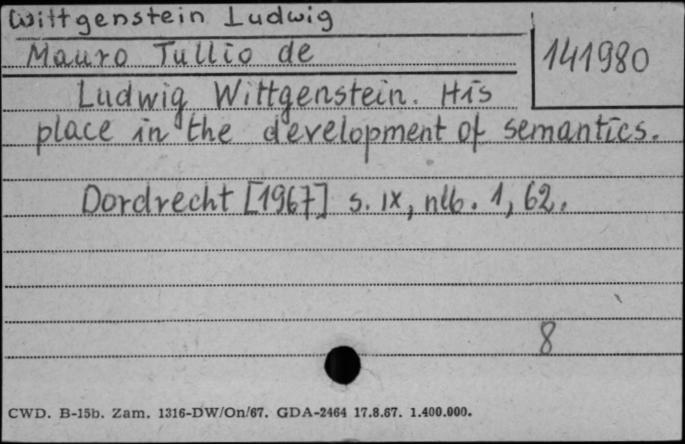 Wittgenstein Ludwig
Mauro Tullio de
141980
Ludwig Wittgenstein. His
place in the development of semantics.
Dordrecht [1967] s. IX, nlb. 1, 62.
8
CWD. B-15b. Zam. 1316-DW/On/67. GDA-2464 17.8.67. 1.400.000.